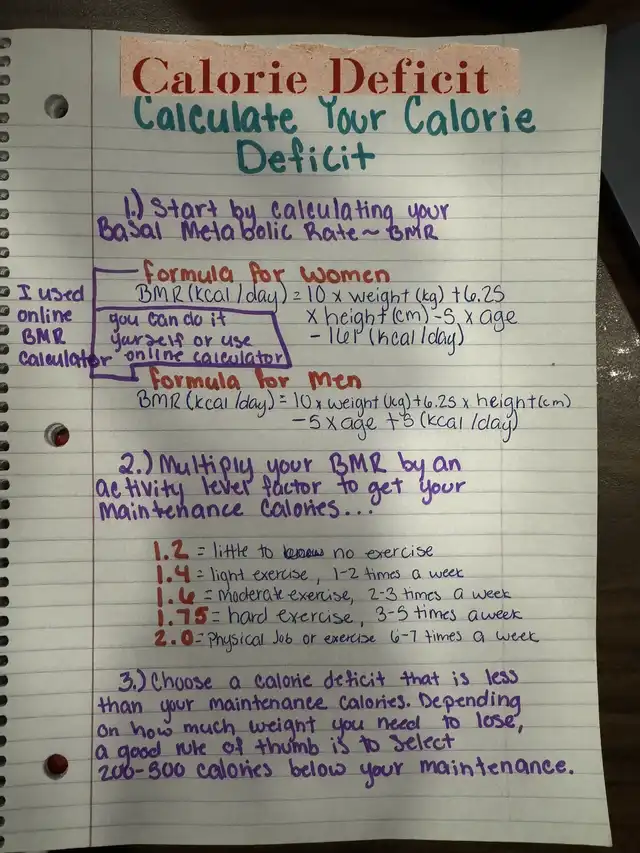 Calorie Deficit
Calculate Your Calorie
Deficit
1.) Start by calculating your
Basal Metabolic Rate~BMR
formula for women
BMR (kcal/day) = 10 x weight (kg) + 6.25
x height (cm) - 5 x age
- 161 (kcal/day)
I used
online
BMR
calculator
you can do it
yourself or use
online calculator
formula for Men
BMR (kcal/day) = 10 x weight (kg) + 6.25 x height (cm)
- 5 x age + 5 (kcal/day)
2.) Multiply your BMR by an
activity level factor to get your
Maintenance Calories...
1.2 = little to no exercise
1.4 = light exercise, 1-2 times a week
1.6 = moderate exercise, 2-3 times a week
1.75 = hard exercise, 3-5 times a week
2.0 = Physical Job or exercise 6-7 times a week
3.) Choose a calorie deficit that is less
than your maintenance calories. Depending
on how much weight you need to lose,
a good rule of thumb is to select
calories below your maintenance.